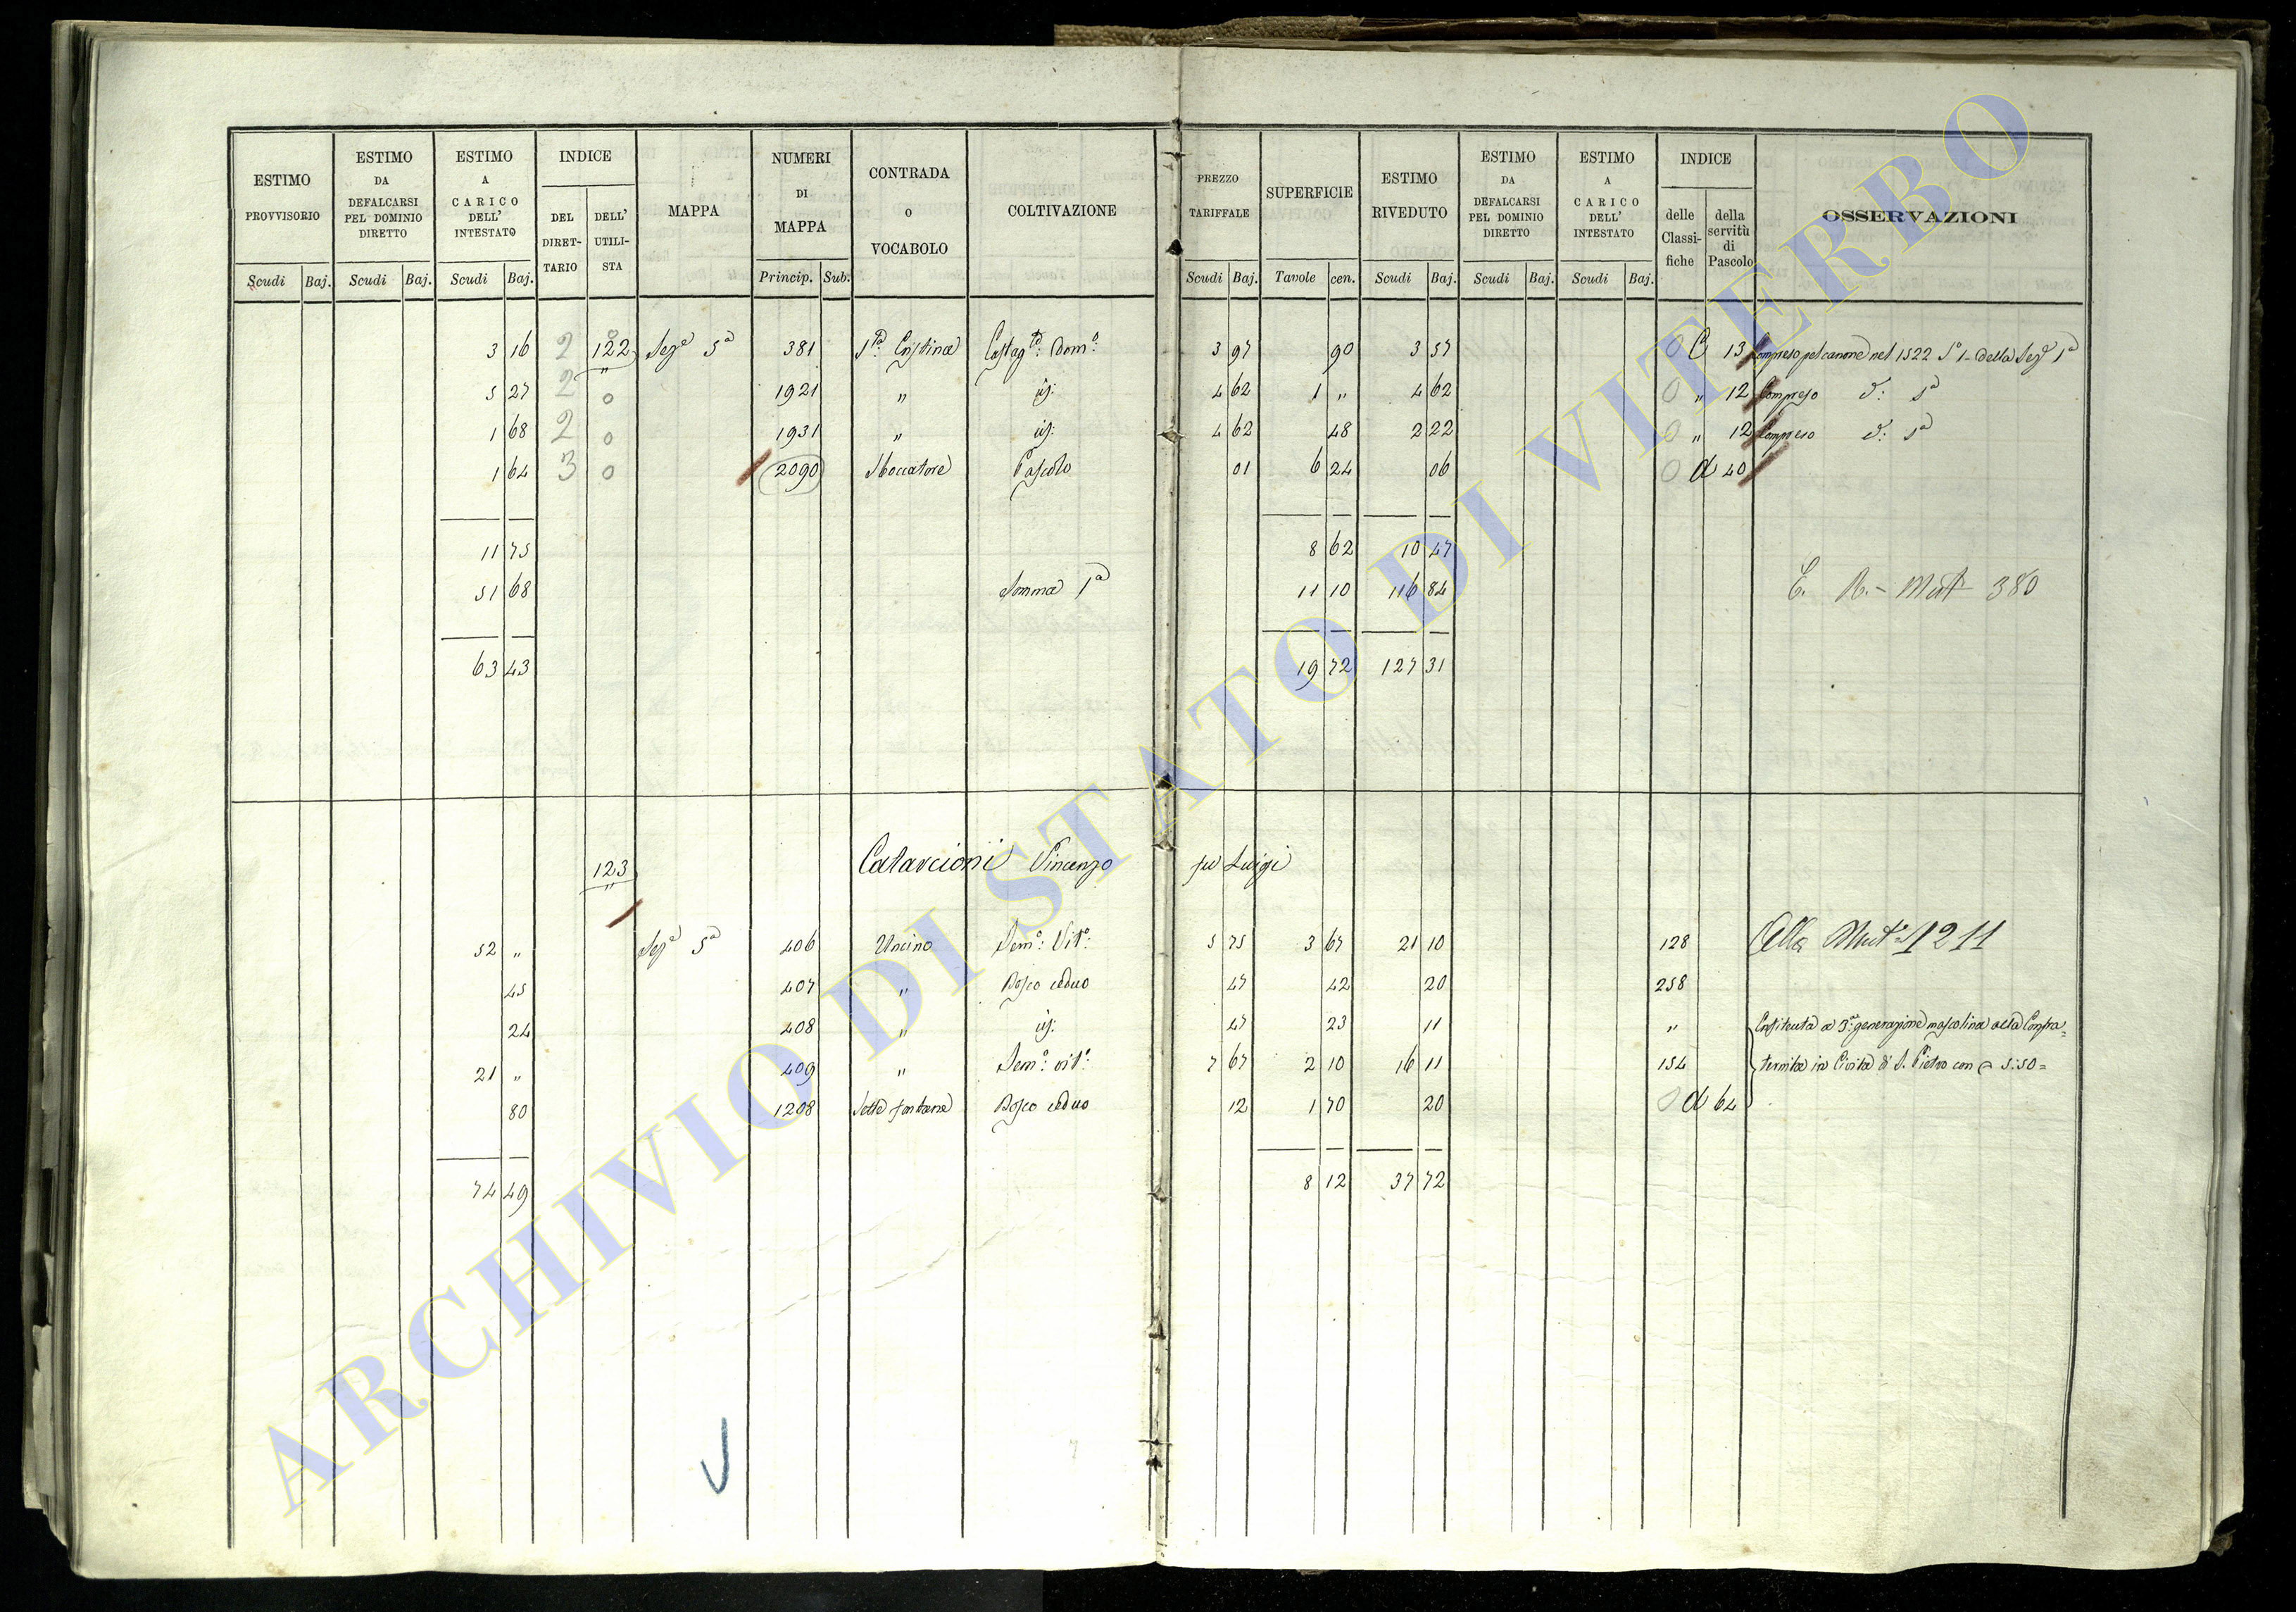 ESTIMO PROVVISORIO | ESTIMO DA DEFALCARSI PEL DOMINIO DIRETTO | ESTIMO A CARICO DELL' INTESTATO | INDICE | MAPPA | NUMERI DI MAPPA | CONTRADA O VOCABOLO | COLTIVAZIONE | PREZZO TARIFFALE | SUPERFICIE | ESTIMO RIVEDUTO | ESTIMO DA DEFALCARSI PEL DOMINIO DIRETTO | ESTIMO A CARICO DELL' INTESTATO | INDICE | OSSERVAZIONI
DEL DIRETTARIO | DELL' UTILISTA | delle Classifiche | della servitù di Pascolo
Scudi | Baj. | Scudi | Baj. | Scudi | Baj. | Princip. | Sub. | Scudi | Baj. | Tavole | cen. | Scudi | Baj. | Scudi | Baj. | Scudi | Baj.
3 16 2 122 Sezne 5a 381 Sta: Cristina Castagto: Domo: 3 97 90 3 57 0 C 13 Compreso pel canone nel 1522 So 1 della Sezne 1a
5 27 2 0 1921 " id: 4 62 1 " 4 62 0 " 12 Compreso d: 5a
1 68 2 0 1931 " id: 4 62 48 2 22 0 " 12 Compreso d: 5a
1 64 3 0 2090 Sboccatore Pascolo 01 6 24 06 0 d 40
11 75 8 62 10 47
51 68 Somma 1a 11 10 116 84 E. R. - Mut 380
63 43 19 72 127 31
123 Catarcioni Vincenzo fu Luigi
52 " Sezne 5a 406 Uncino Semo: Vito: 5 75 3 67 21 10 128 Alla Muta 1211
45 407 " Bosco ceduo 47 42 20 258
24 408 " id: 47 23 11 " Enfiteuta a 3a: generazione mascolina della Confra=
21 " 409 " Semo: vito: 7 67 2 10 16 11 154 ternita in Civita di S. Pietro con 5:50=
80 1208 Sette fontane Bosco ceduo 12 1 70 20 0 d 64
74 49 8 12 37 72
ARCHIVIO DI STATO DI VITERBO